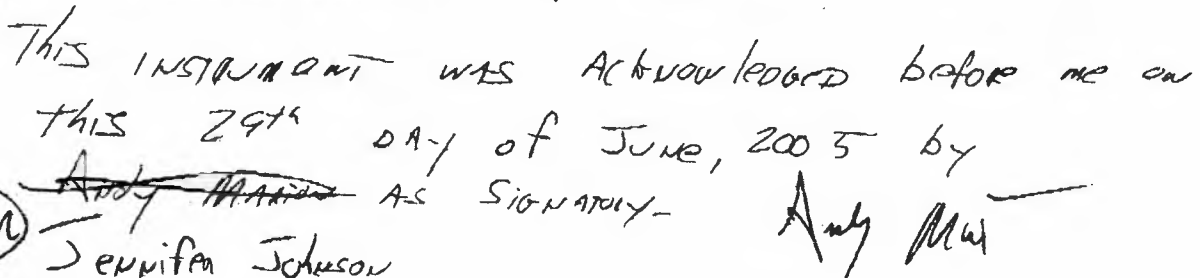 This instrument was Acknowledged before me on
this 29th day of June, 2005 by
Andy Marion as signatory-
Jennifer Johnson